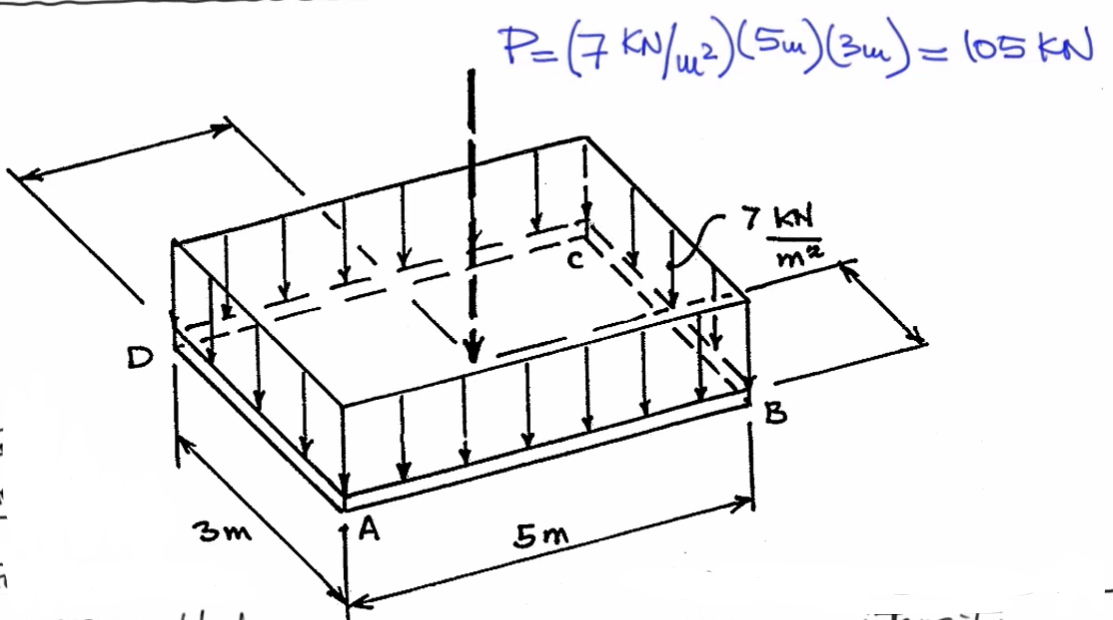 P=(7 KN/m²)(5m)(3m)=105 KN
7 KN/m²
C
D
B
A
3m
5m